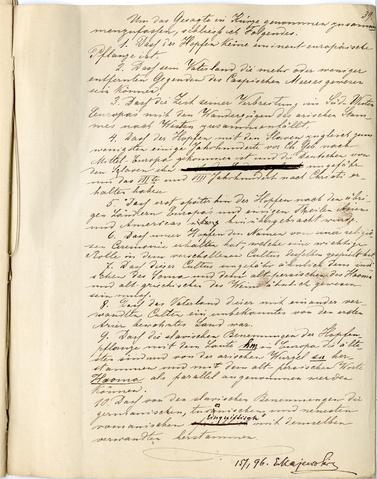 Um das Gesagte in Kürze genommen zusam
menzufassen, schliesst es folgendes.
1. Dass der Hopfen keine eminent europäische
Pflanze ist.
2. Dass sein Vaterland die mehr oder weniger
entfernten Gegenden des Caspischen Meeres gewesen
sein können.
3. Dass die Zeit seiner Verbreitung im Süd Westen
Europas mit den Wanderzügen des arischen Stam
mes nach Westen zusammenfällt.
4. Dass der Hopfen mit den Slaven zugleich zum
wenigsten einige Jahrhunderte vor Chr. Geb. nach
Mittel Europa gekommen ist und die Deutschen von
den Slaven ihn ungefähr
um das VII und VIII Jahrhundert nach Christi er
halten haben.
5. Dass erst später ihn der Hopfen nach den übri
gen Ländern Europas und einigen Theilen Asien
und Americas hinübergebracht wurde.
6. Dass unser Hopfen den Namen von einer religiö
sen Ceremonie erhalten hat, welche eine wichtige
Rolle in dem verschollenen Cultus desselben gespielt hat.
7. Dass dieser Cultus ursprünglich ähnlich dem indi
schen des Soma und dem alt persischen des Haoma
und alt griechischen des Weines ähnlich gewesen
sein muss.
8. Dass das Vaterland dieser mit einander ver
wandten Culten ein unbekanntes von den ersten
Arier bewohntes Land war.
9. Dass die slavischen Benennungen der Hopfen
pflanze mit dem Laute hm in Europa die älte
sten sind und von der arischen Wurzel su her
stammen und mit dem alt persischen Worte
Haoma als parallel angenommen werden
können.
10. Dass von den slavischen Benennungen die
germanischen, und neuesten
romanischen linguistisch mit denselben
verwandten herstammen.
15/I 96. E Majewski